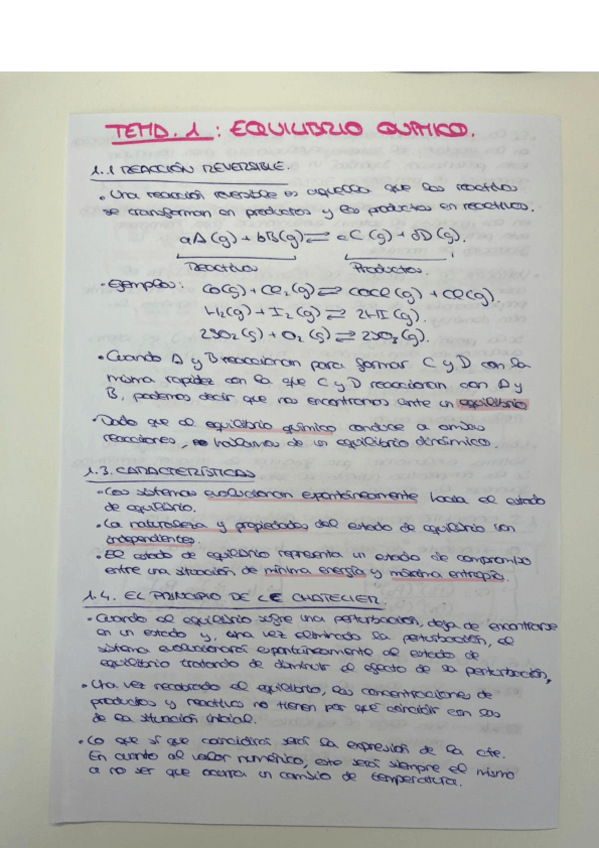 TEMA. 1 : EQUILIBRIO QUÍMICO.
1.1 REACCIÓN REVERSIBLE.
• Una reacción reversible es aquella que los reactivos
se transforman en productos y los productos en reactivos.
aA(g) + bB(g) ⇌ cC(g) + dD(g).
Reactivos Productos.
• Ejemplos: CO(g) + Cl₂(g) ⇌ COCl(g) + Cl(g).
H₂(g) + I₂(g) ⇌ 2HI(g).
2SO₂(g) + O₂(g) ⇌ 2SO₃(g).
• Cuando A y B reaccionan para formar C y D con la
misma rapidez con la que C y D reaccionan con A y
B, podemos decir que nos encontramos ante un equilibrio
• Dado que el equilibrio químico conduce a ambas
reacciones, hablamos de un equilibrio dinámico.
1.3. CARACTERÍSTICAS
• Los sistemas evolucionan espontáneamente hacia el estado
de equilibrio.
• La naturaleza y propiedades del estado de equilibrio son
independientes.
• El estado de equilibrio representa un estado de compromiso
entre una situación de mínima energía y máxima entropía.
1.4. EL PRINCIPIO DE LE CHATELIER.
• Cuando el equilibrio sufre una perturbación, deja de encontrarse
en un estado y, una vez eliminado la perturbación, el
sistema evolucionará espontáneamente al estado de
equilibrio tratando de disminuir el efecto de la perturbación,
• Una vez recobrado el equilibrio, las concentraciones de
productos y reactivos no tienen por qué coincidir con las
de la situación inicial.
• Lo que sí que coincidirá será la expresión de la cte.
En cuanto al valor numérico, este será siempre el mismo
a no ser que ocurra un cambio de temperatura.